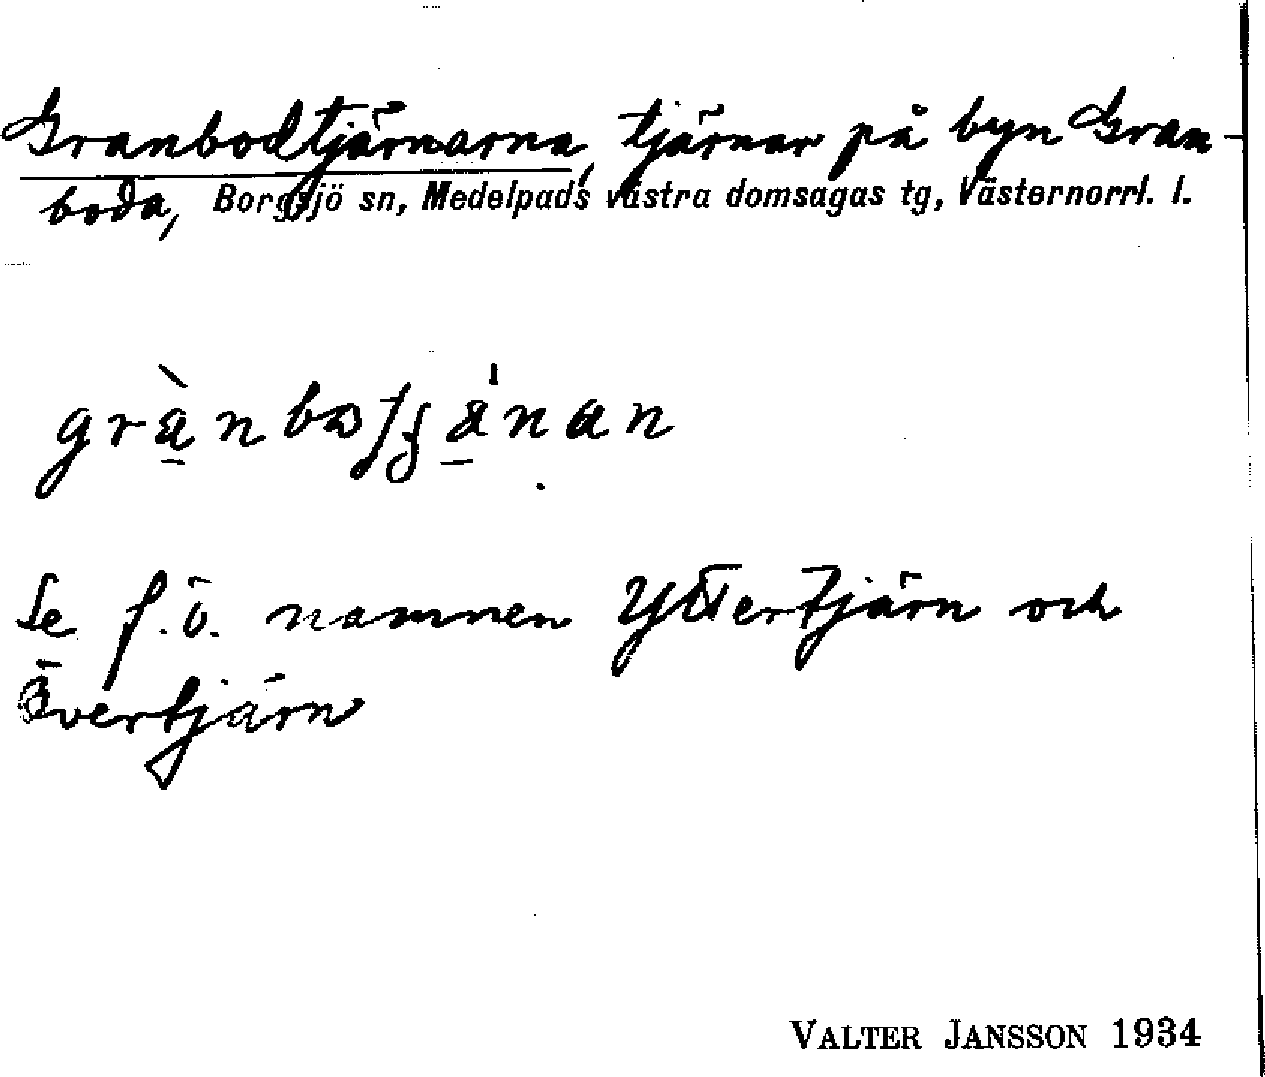 Granbodtjärnarna, tjärnar på byn Gran-
boda, Borgsjö sn, Medelpads västra domsagas tg, Västernorrl. l.
Se f.ö. namnen Yttertjärn och
Övertjärn
VALTER JANSSON 1934